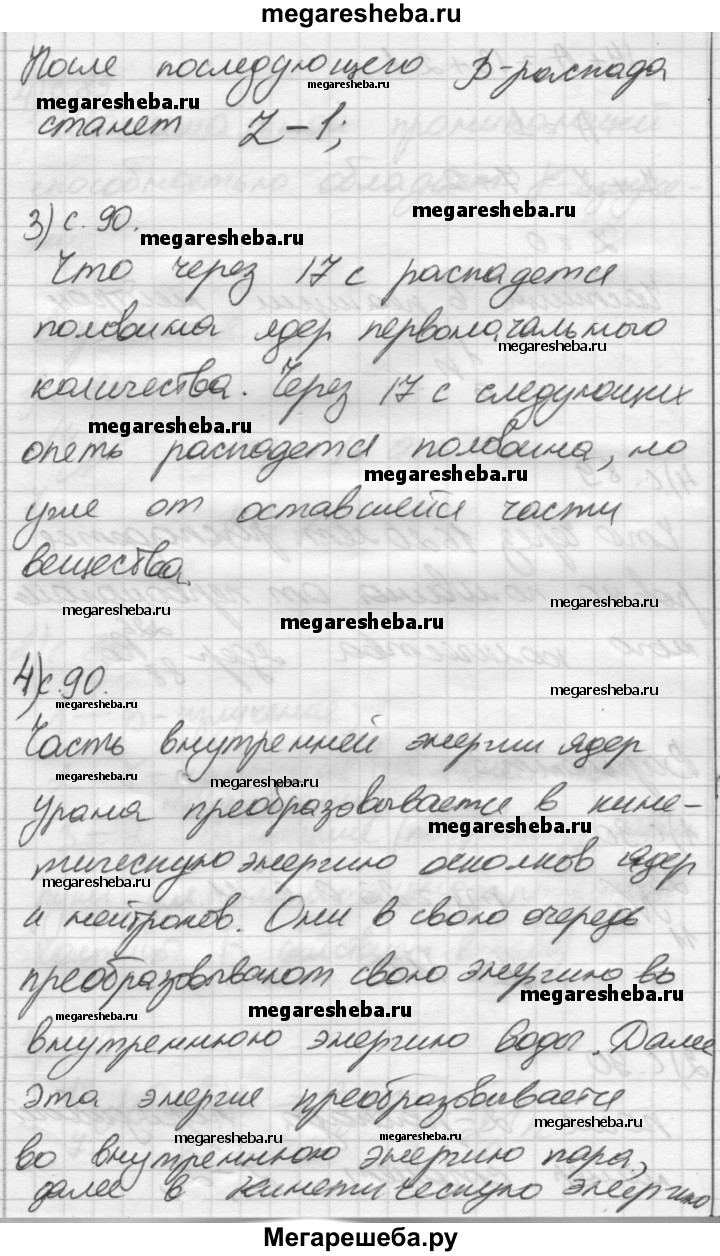 megaresheba.ru
После последующего β-распада
megaresheba.ru
megaresheba.ru
станет Z-1;
3) с. 90.
megaresheba.ru
megaresheba.ru
Что через 17 с распадется
половина ядер первоначального
megaresheba.ru
количества. Через 17 с следующих
megaresheba.ru
опеть распадется половина, но
megaresheba.ru
уже от оставшейся части
вещества.
megaresheba.ru
megaresheba.ru
megaresheba.ru
4) с. 90.
megaresheba.ru
megaresheba.ru
Часть внутренней энергии ядер
megaresheba.ru
megaresheba.ru
урана преобразовывается в кине-
megaresheba.ru
тическую энергию осколков ядер
megaresheba.ru
и нейтронов. Они в свою очередь
преобразовывают свою энергию во
megaresheba.ru
megaresheba.ru
megaresheba.ru
внутреннюю энергию воды. Далее
эта энергия преобразовывается
megaresheba.ru
megaresheba.ru
megaresheba.ru
во внутреннюю энергию пара,
далее в кинетическую энергию
Мегарешеба.ру